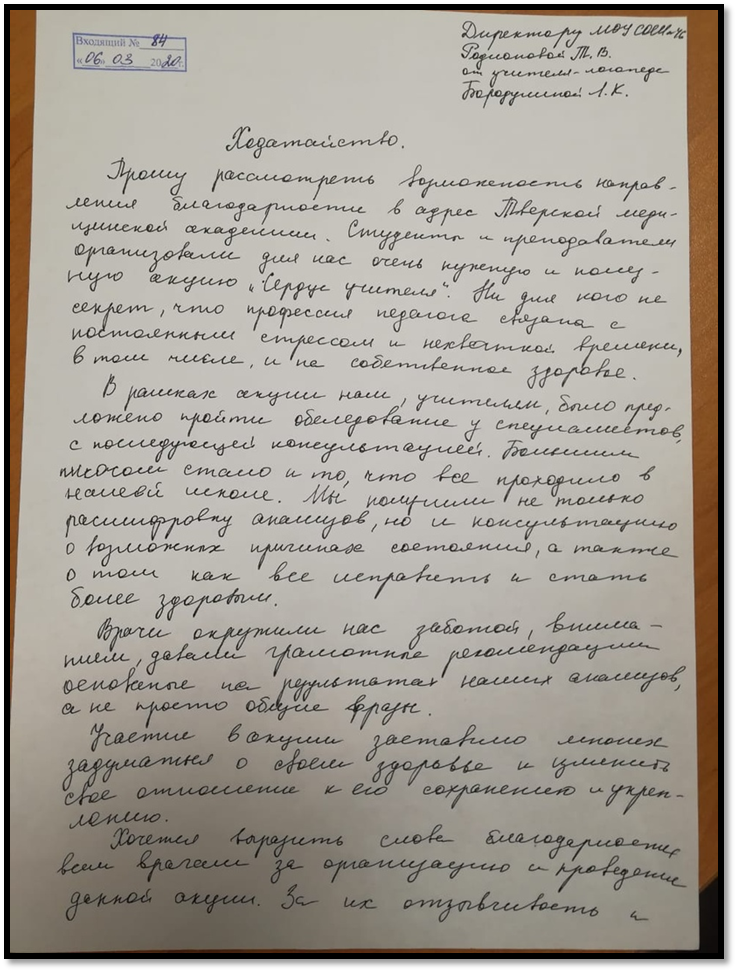 Входящий № 84
«06» 03 2020г.
Директору МОУ СОШ №46
Родионовой Т. В.
от учителя-логопеда
Бородулиной Л. К.
Ходатайство.
Прошу рассмотреть возможность направ-
ления благодарности в адрес Тверской меди-
цинской академии. Студенты и преподаватели
организовали для нас очень нужную и полез-
ную акцию „Сердце учителя". Ни для кого не
секрет, что профессия педагога связана с
постоянным стрессом и нехваткой времени,
в том числе, и на собственное здоровье.
В рамках акции нам, учителям, было пред-
ложено пройти обследование у специалистов,
с последующей консультацией. Большим
плюсом стало и то, что все проходило в
нашей школе. Мы получили не только
расшифровку анализов, но и консультацию
о возможных причинах состояния, а также
о том как все исправить и стать
более здоровым.
Врачи окружили нас заботой, внима-
нием, давали грамотные рекомендации
основаные на результатах наших анализов,
а не просто общие фразы.
Участие в акции заставило многих
задуматься о своем здоровье и изменить
свое отношение к его сохранению и укреп-
лению.
Хочется выразить слова благодарности
всем врачам за организацию и проведение
данной акции. За их отзывчивость и